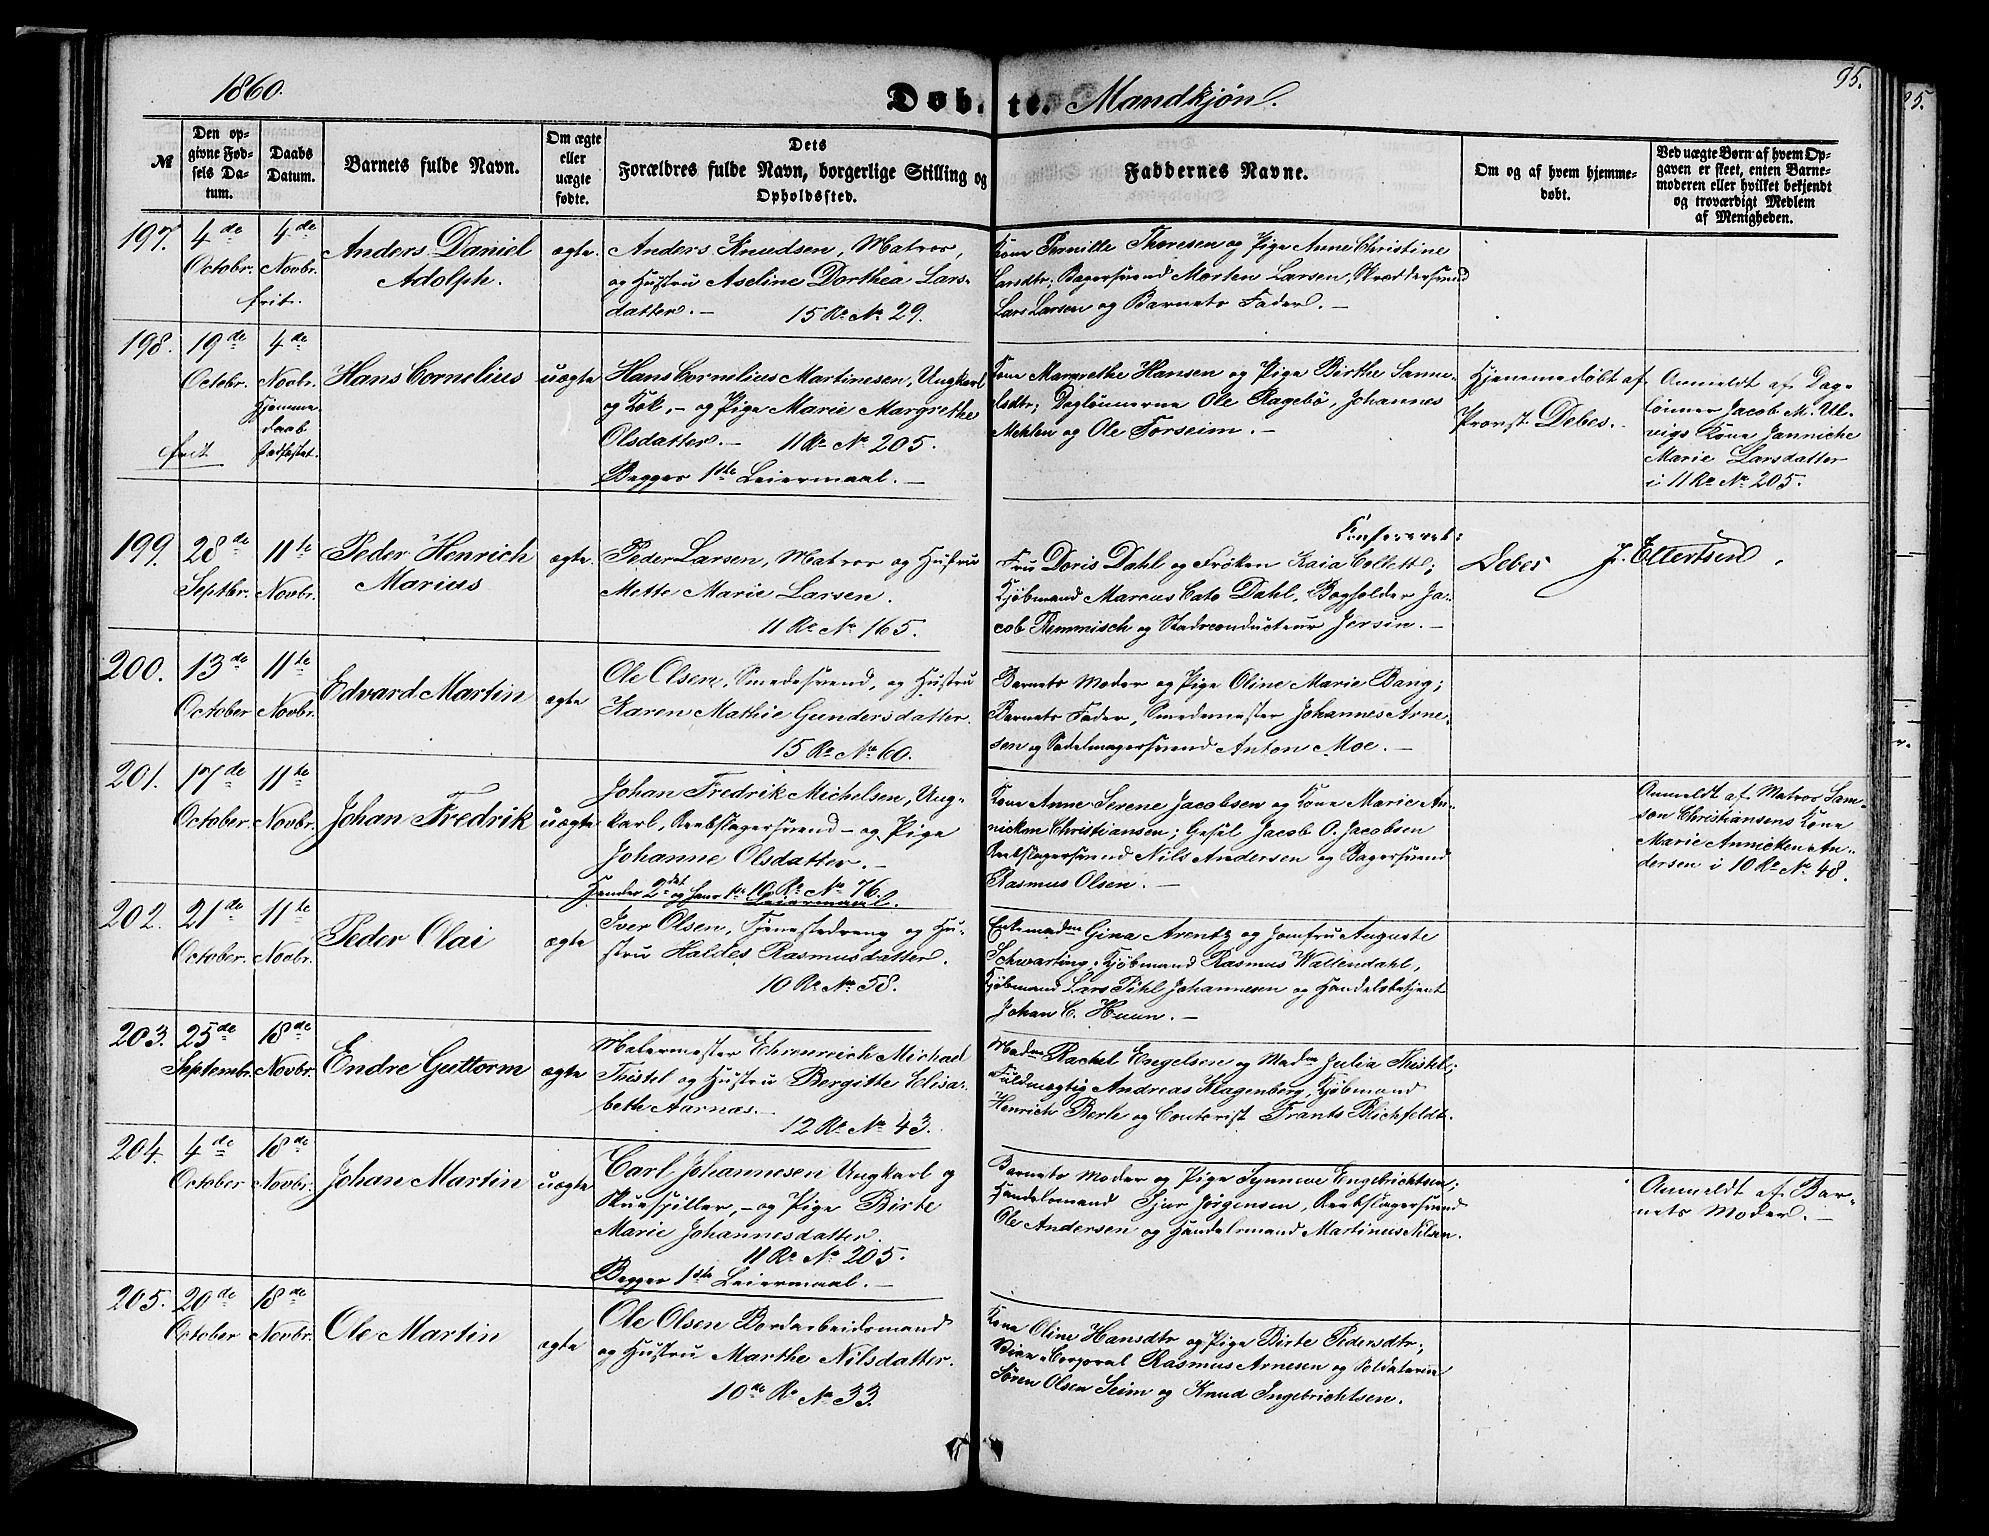 1860.
Døbte. Mandkjøn.
95.
№
Den opgivne Fødsels Datum.
Daabs Datum.
Barnets fulde Navn.
Om ægte eller uægte fødte.
Dets Forældres fulde Navn, borgerlige Stilling og Opholdssted.
Faddernes Navne.
Om og af hvem hjemmedøbt.
Ved uægte Børn af hvem Opgaven er skeet, enten Barnemoderen eller hvilket bekjendt og troværdigt Medlem af Menigheden.
197. 4de Octobr. 4de Novbr. frit.
Anders Daniel
Adolph.
ægte.
Anders Knudsen, Matros,
og Hustru Aseline Dorthea Lars-
datter. - 15 Re No 29.
Kone Pernille Thoresen og Pige Anne Christine
Larsdtr; Bagersvend Morten Larsen, Skræddersvend
Lars Larsen og Barnets Fader. -
198. 19de Octobr. 4de Novbr.
Hjemme-
daab
stadfæstet.
frit
Hans Cornelius
uægte
Hans Cornelius Martinesen, Ungkarl
og Kok, - og Pige Marie Margrethe
Olsdatter. - 11 Re No 205.
Begges 1ste Leiermaal. -
Kone Margrethe Hansen og Pige Birthe Samu-
elsdtr; Daglønnerne Ole Ragebø, Johannes
Mehlen og Ole Forseim. -
Hjemmedøbt af
Provst Debes. -
Anmeldt af Dag-
lønner Jacob M. Ul-
vigs Kone Janniche
Marie Larsdatter
i 11 Re No 205.
199. 28de Septbr. 11te Novbr.
Peder Henrich
Marius
ægte.
Peder Larsen, Matros og Hustru
Mette Marie Larsen.
11 Re No 165.
Fru Doris Dahl og Frøken Kaia Collett;
Kjøbmand Marcus Cato Dahl, Bogholder Ja-
cob Remmisch og Stadsconducteur Jersin. -
Debes J. Ellertsen
200. 13de October 11te Novbr.
Edvard Martin
ægte
Ole Olsen, Smedesvend, og Hustru
Karen Mathie Gundersdatter.
15 Re No 60.
Barnets Moder og Pige Oline Marie Bang;
Barnets Fader, Smedemester Johannes Arne-
sen og Sadelmagersvend Anton Moe. -
201. 17de October. 11te Novbr.
Johan Fredrik
uægte
Johan Fredrik Michelsen, Ung-
karl, Reebslagersvend - og Pige
Johanne Olsdatter. -
10 Re No 76.
Leiermaal.
Kone Anne Serene Jacobsen og Kone Marie An-
nicken Christiansen; Gesel Jacob O. Jacobsen
Reebslagersvend Nils Andersen og Bagersvend
Rasmus Olsen. -
Anmeldt af Matros Sam-
son Christiansens Kone
Marie Annicken An-
dersen i 10 Re No 48.
202. 21de October. 11te Novbr.
Peder Olai
ægte
Iver Olsen, Tjenestedreng og Hu-
stru Haldes Rasmusdatter.
10 Re No 58.
Enkemadm Gina Arentz og Jomfru Auguste
Schwarting; Kjøbmand Rasmus Wallendahl,
Kjøbmand Lars Pihl Johannesen og Handelsbetjent
Johan C. Huun. -
203. 25de Septembr. 18de Novbr.
Endre Guttorm
ægte
Malermester Ehrenreich Michael
Thistel og Hustru Bergitte Elisa-
beth Aarnæs. -
12 Re No 43.
Madm Rachel Engelsen og Madm Julia Thistel;
Fuldmægtig Andreas Klagenberg, Kjøbmand
Henrich Berle og Contorist Frants Blichfeldt.
204. 4de October 18de Novbr.
Johan Martin
uægte
Carl Johannesen Ungkarl og
Skuespiller, - og Pige Birte
Marie Johannesdatter.
11 Re No 205.
Begges 1ste Leiermaal. -
Barnets Moder og Pige Synneve Engebrichtsen;
Handelsmand Sjur Jørgensen, Reebslagersvend
Ole Andersen og Handelsmand Martinus Nilsen.
Anmeldt af Bar-
nets Moder. -
205. 20de October 18de Novbr.
Ole Martin
ægte
Ole Olsen Bordarbeidsmand
og Hustru Marthe Nilsdatter.
10de Re No 33.
Kone Oline Hansdtr og Pige Birte Pedersdtr;
Vice-Corporal Rasmus Arnesen og Soldaterne
Søren Olsen Seim og Knud Ingebrichtsen.